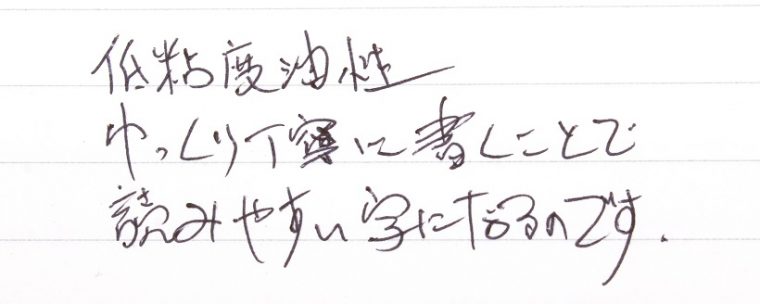 低粘度油性
ゆっくり丁寧に書くことで
読みやすい字になるのです.